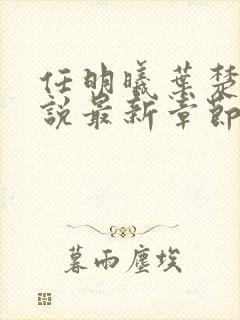 任明曦葉楚
說最新章節
暮雨塵埃